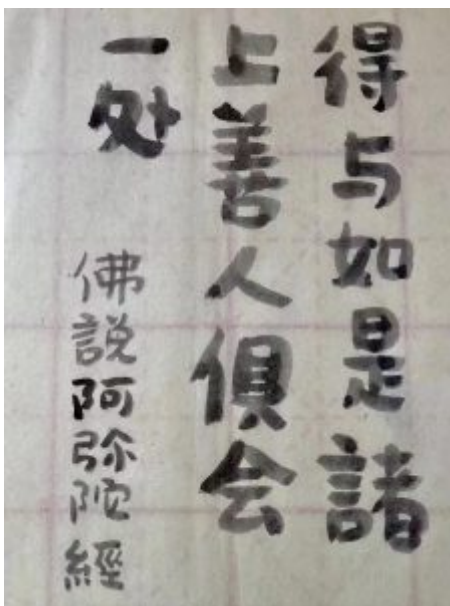 得与如是諸
上善人俱会
一处
佛説阿弥陀經